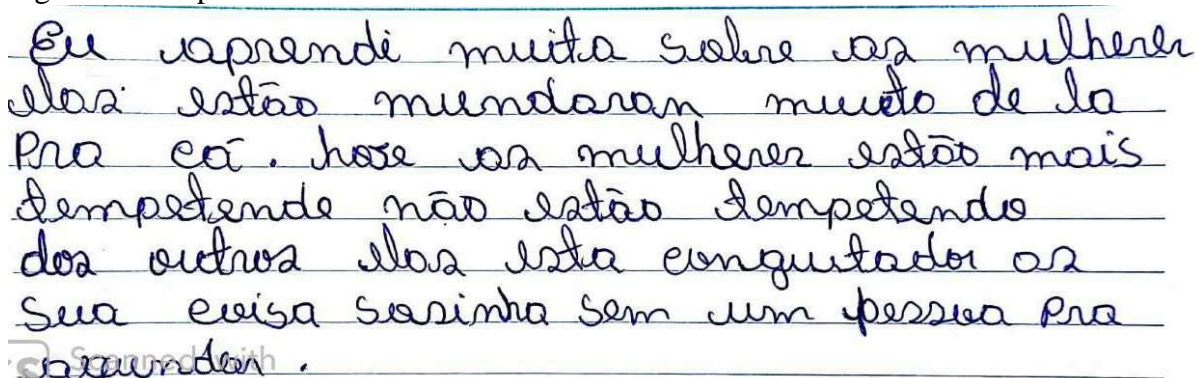 Eu aprendi muita sobre as mulherer
elas estão mundaran mueto de la
pra cá. hose as mulherer estão mais
tempetende não estão tempetendo
dos outros elas esta conquitador os
Sua coisa sosinha sem um pessoa pra
Scanned with